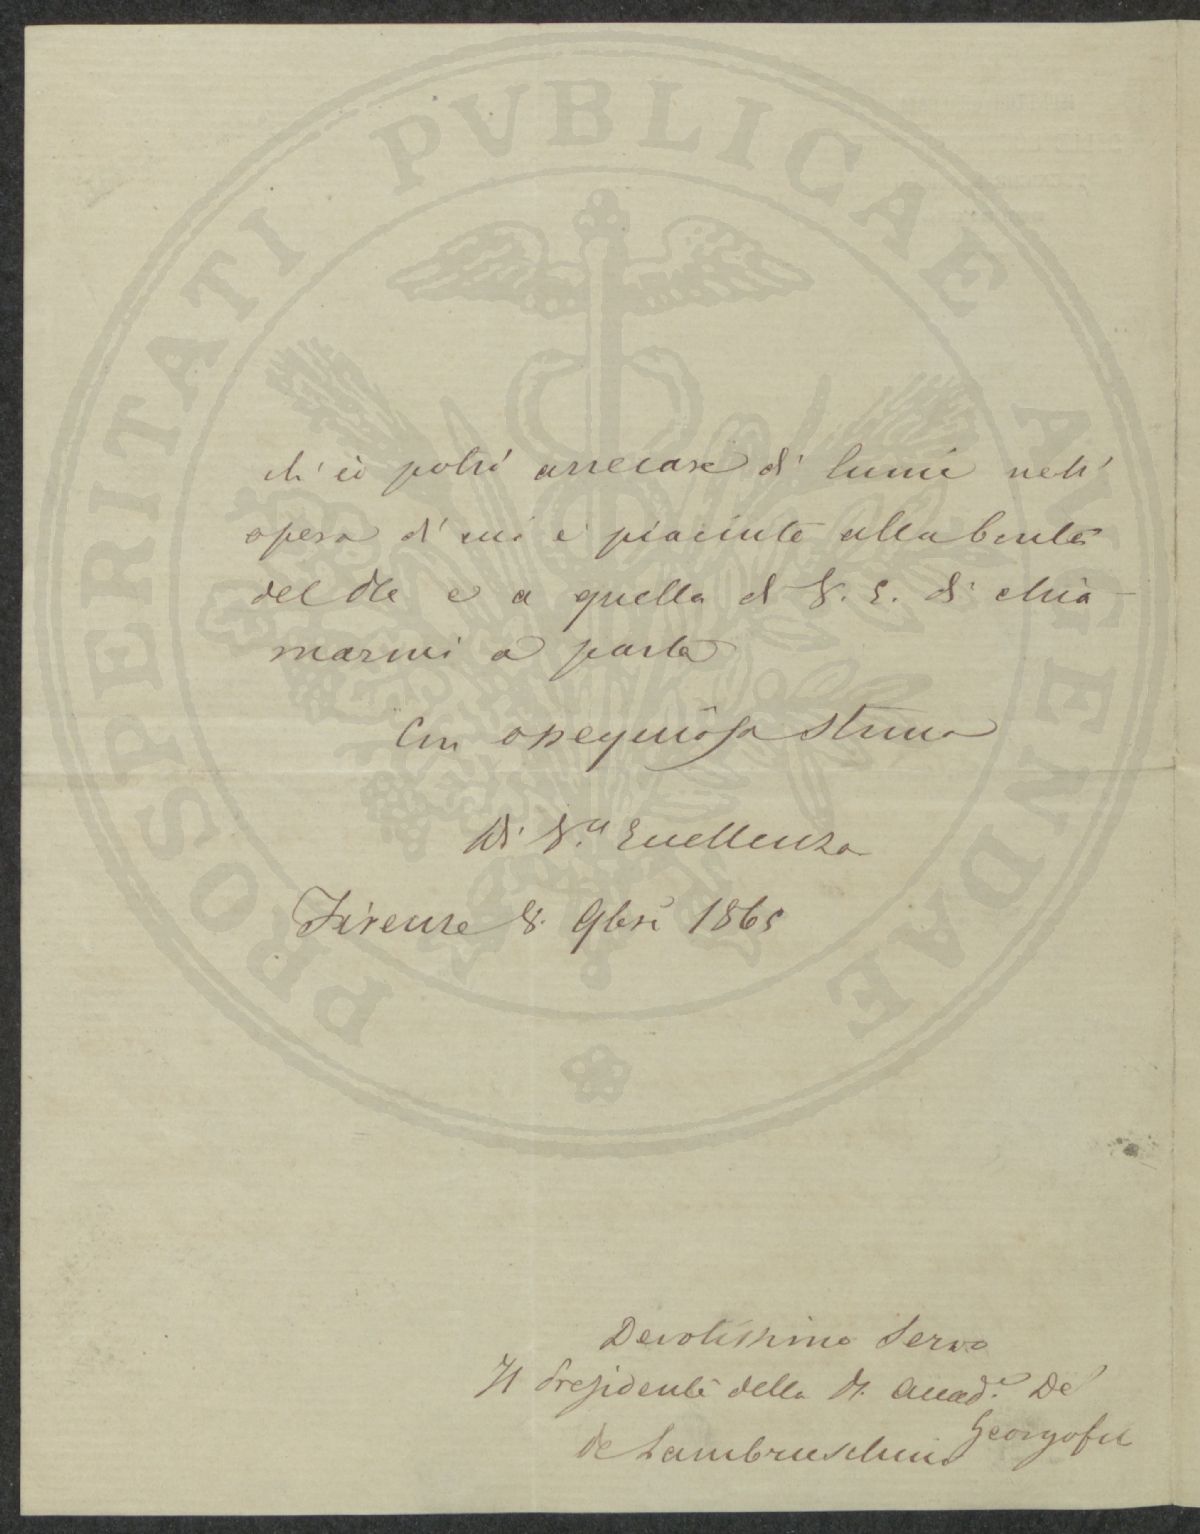 PROSPERITATI PVBLICAE AVGENDAE
ch' io potrò arrecare di lumi nell'
opera di cui è piaciuto alla bontà
del Re e a quella di V. E. di chia-
marmi a parte
Con ossequiosa stima
Di V.a Eccellenza
Firenze 8. 9bre 1865
Devotissimo Servo
Il Presidente della R. Accad.a De'
Georgofili
Lambruschini